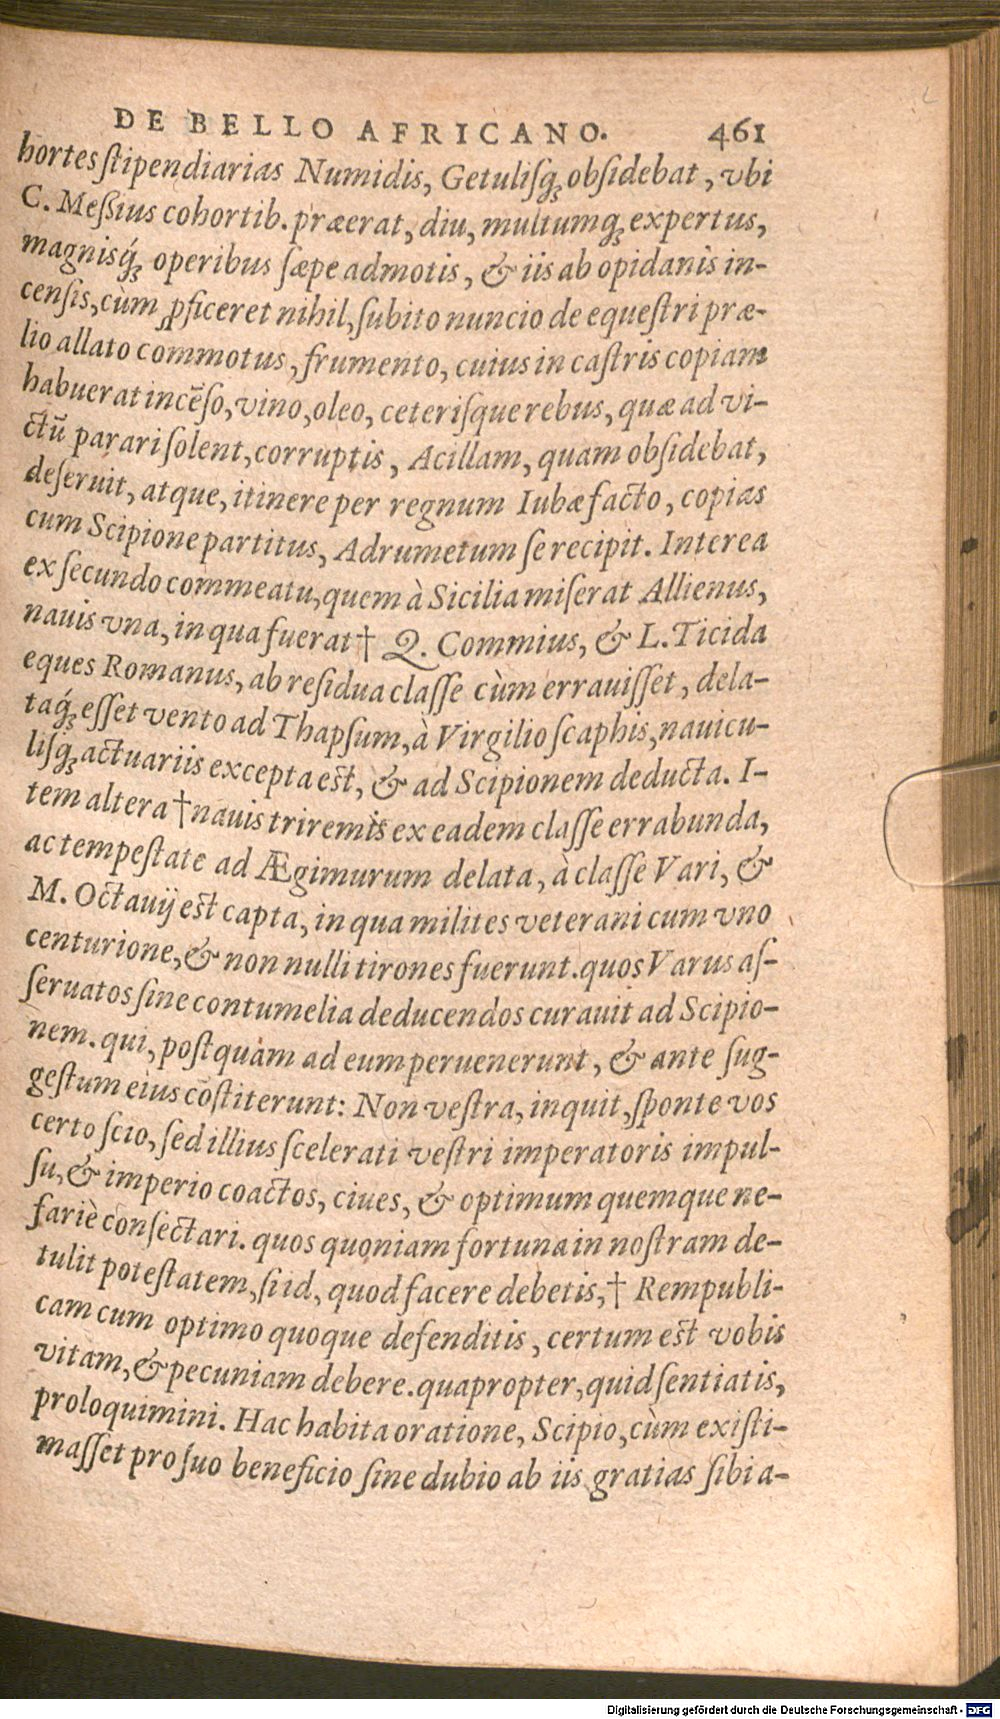 DE BELLO AFRICANO. 461
hortes ſtipendiarias Numidis, Getuliſq́ꝫ obſidebat, vbi
C. Meßius cohortib. præerat, diu, multumqꝫ expertus,
magnisq́ꝫ operibus ſæpe admotis, & iis ab opidanis in-
censis, cùm ꝓficeret nihil, ſubito nuncio de equeſtri præ-
lio allato commotus, frumento, cuius in caſtris copiam
habuerat incẽſo, vino, oleo, ceteriſque rebus, quæ ad vi-
ctũ parari ſolent, corruptis, Acillam, quam obſidebat,
deſeruit, atque, itinere per regnum Iubæ facto, copias
cum Scipione partitus, Adrumetum ſe recipit. Interea
ex ſecundo commeatu, quem à Sicilia miſerat Allienus,
nauis vna, in qua fuerat † Q. Commius, & L. Ticida
eques Romanus, ab reſidua claſſe cùm errauiſſet, dela-
taq́ꝫ eſſet vento ad Thapſum, à Virgilio ſcaphis, nauicu-
liſq́ꝫ actuariis excepta eſt, & ad Scipionem deducta. I-
tem altera † nauis triremis ex eadem claſſe errabunda,
ac tempeſtate ad Ægimurum delata, à claſſe Vari, &
M. Octauij eſt capta, in qua milites veterani cum vno
centurione, & non nulli tirones fuerunt. quos Varus aſ-
ſeruatos ſine contumelia deducendos curauit ad Scipio-
nem. qui, poſtquam ad eum peruenerunt, & ante ſug-
geſtum eius cõſtiterunt: Non veſtra, inquit, ſponte vos
certo ſcio, ſed illius ſcelerati veſtri imperatoris impul-
ſu, & imperio coactos, ciues, & optimum quemque ne-
fariè conſectari. quos quoniam fortuna in noſtram de-
tulit poteſtatem, ſi id, quod facere debetis, † Rempubli-
cam cum optimo quoque defenditis, certum eſt vobis
vitam, & pecuniam debere. quapropter, quid ſentiatis,
proloquimini. Hac habita oratione, Scipio, cùm exiſti-
maſſet pro ſuo beneficio ſine dubio ab iis gratias ſibi a-
Digitalisierung gefördert durch die Deutsche Forschungsgemeinschaft - DFG